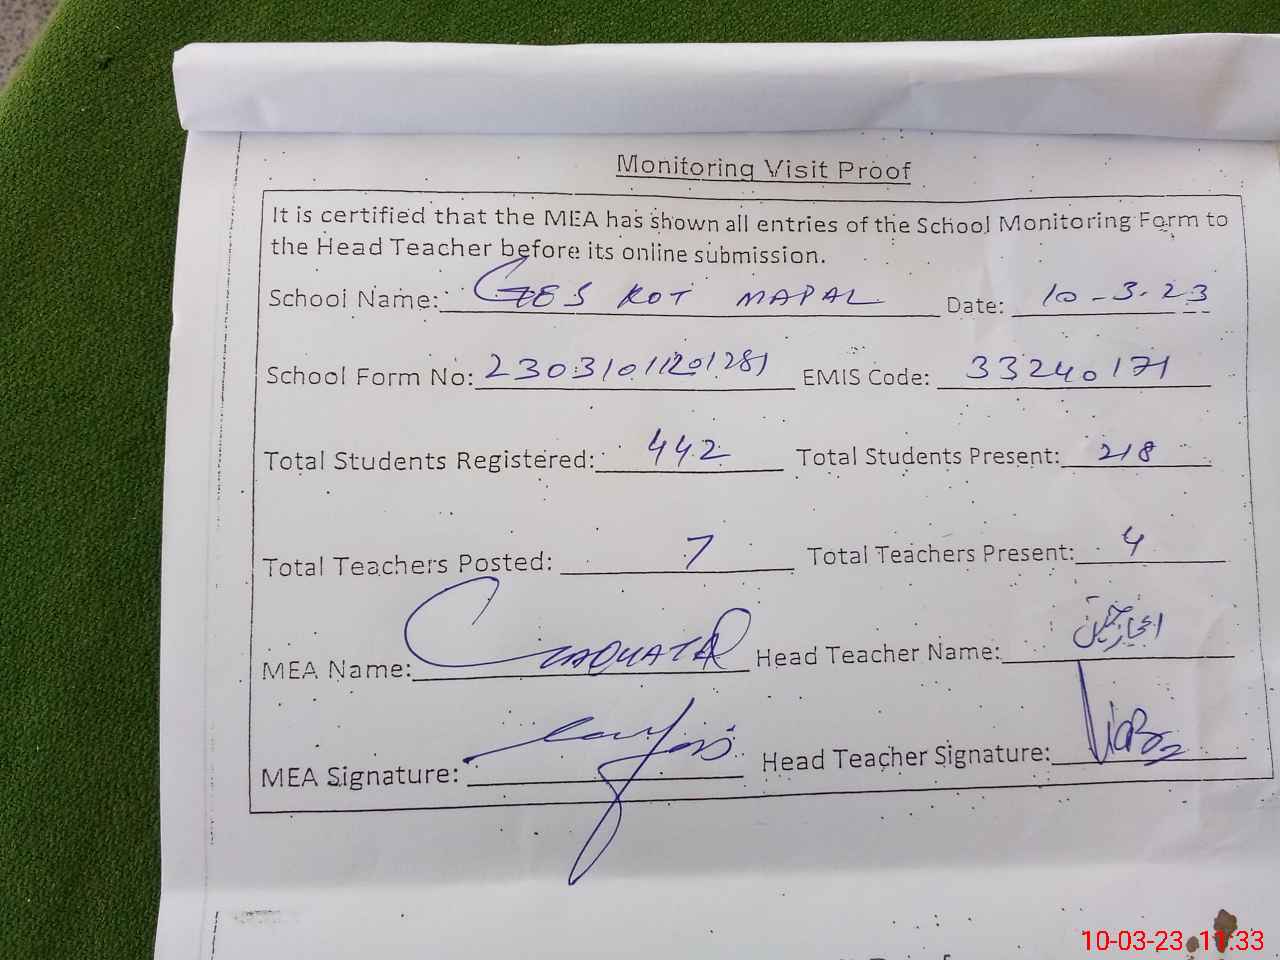 Monitoring Visit Proof
It is certified that the MEA has shown all entries of the School Monitoring Form to
the Head Teacher before its online submission.
School Name: GES KOT MAPAL Date: 10-3-23
School Form No: 23031011201281 EMIS Code: 33240171
Total Students Registered: 442 Total Students Present: 218
Total Teachers Posted: 7 Total Teachers Present: 4
MEA Name: Head Teacher Name:
MEA Signature: Head Teacher Signature:
10-03-23 11:33